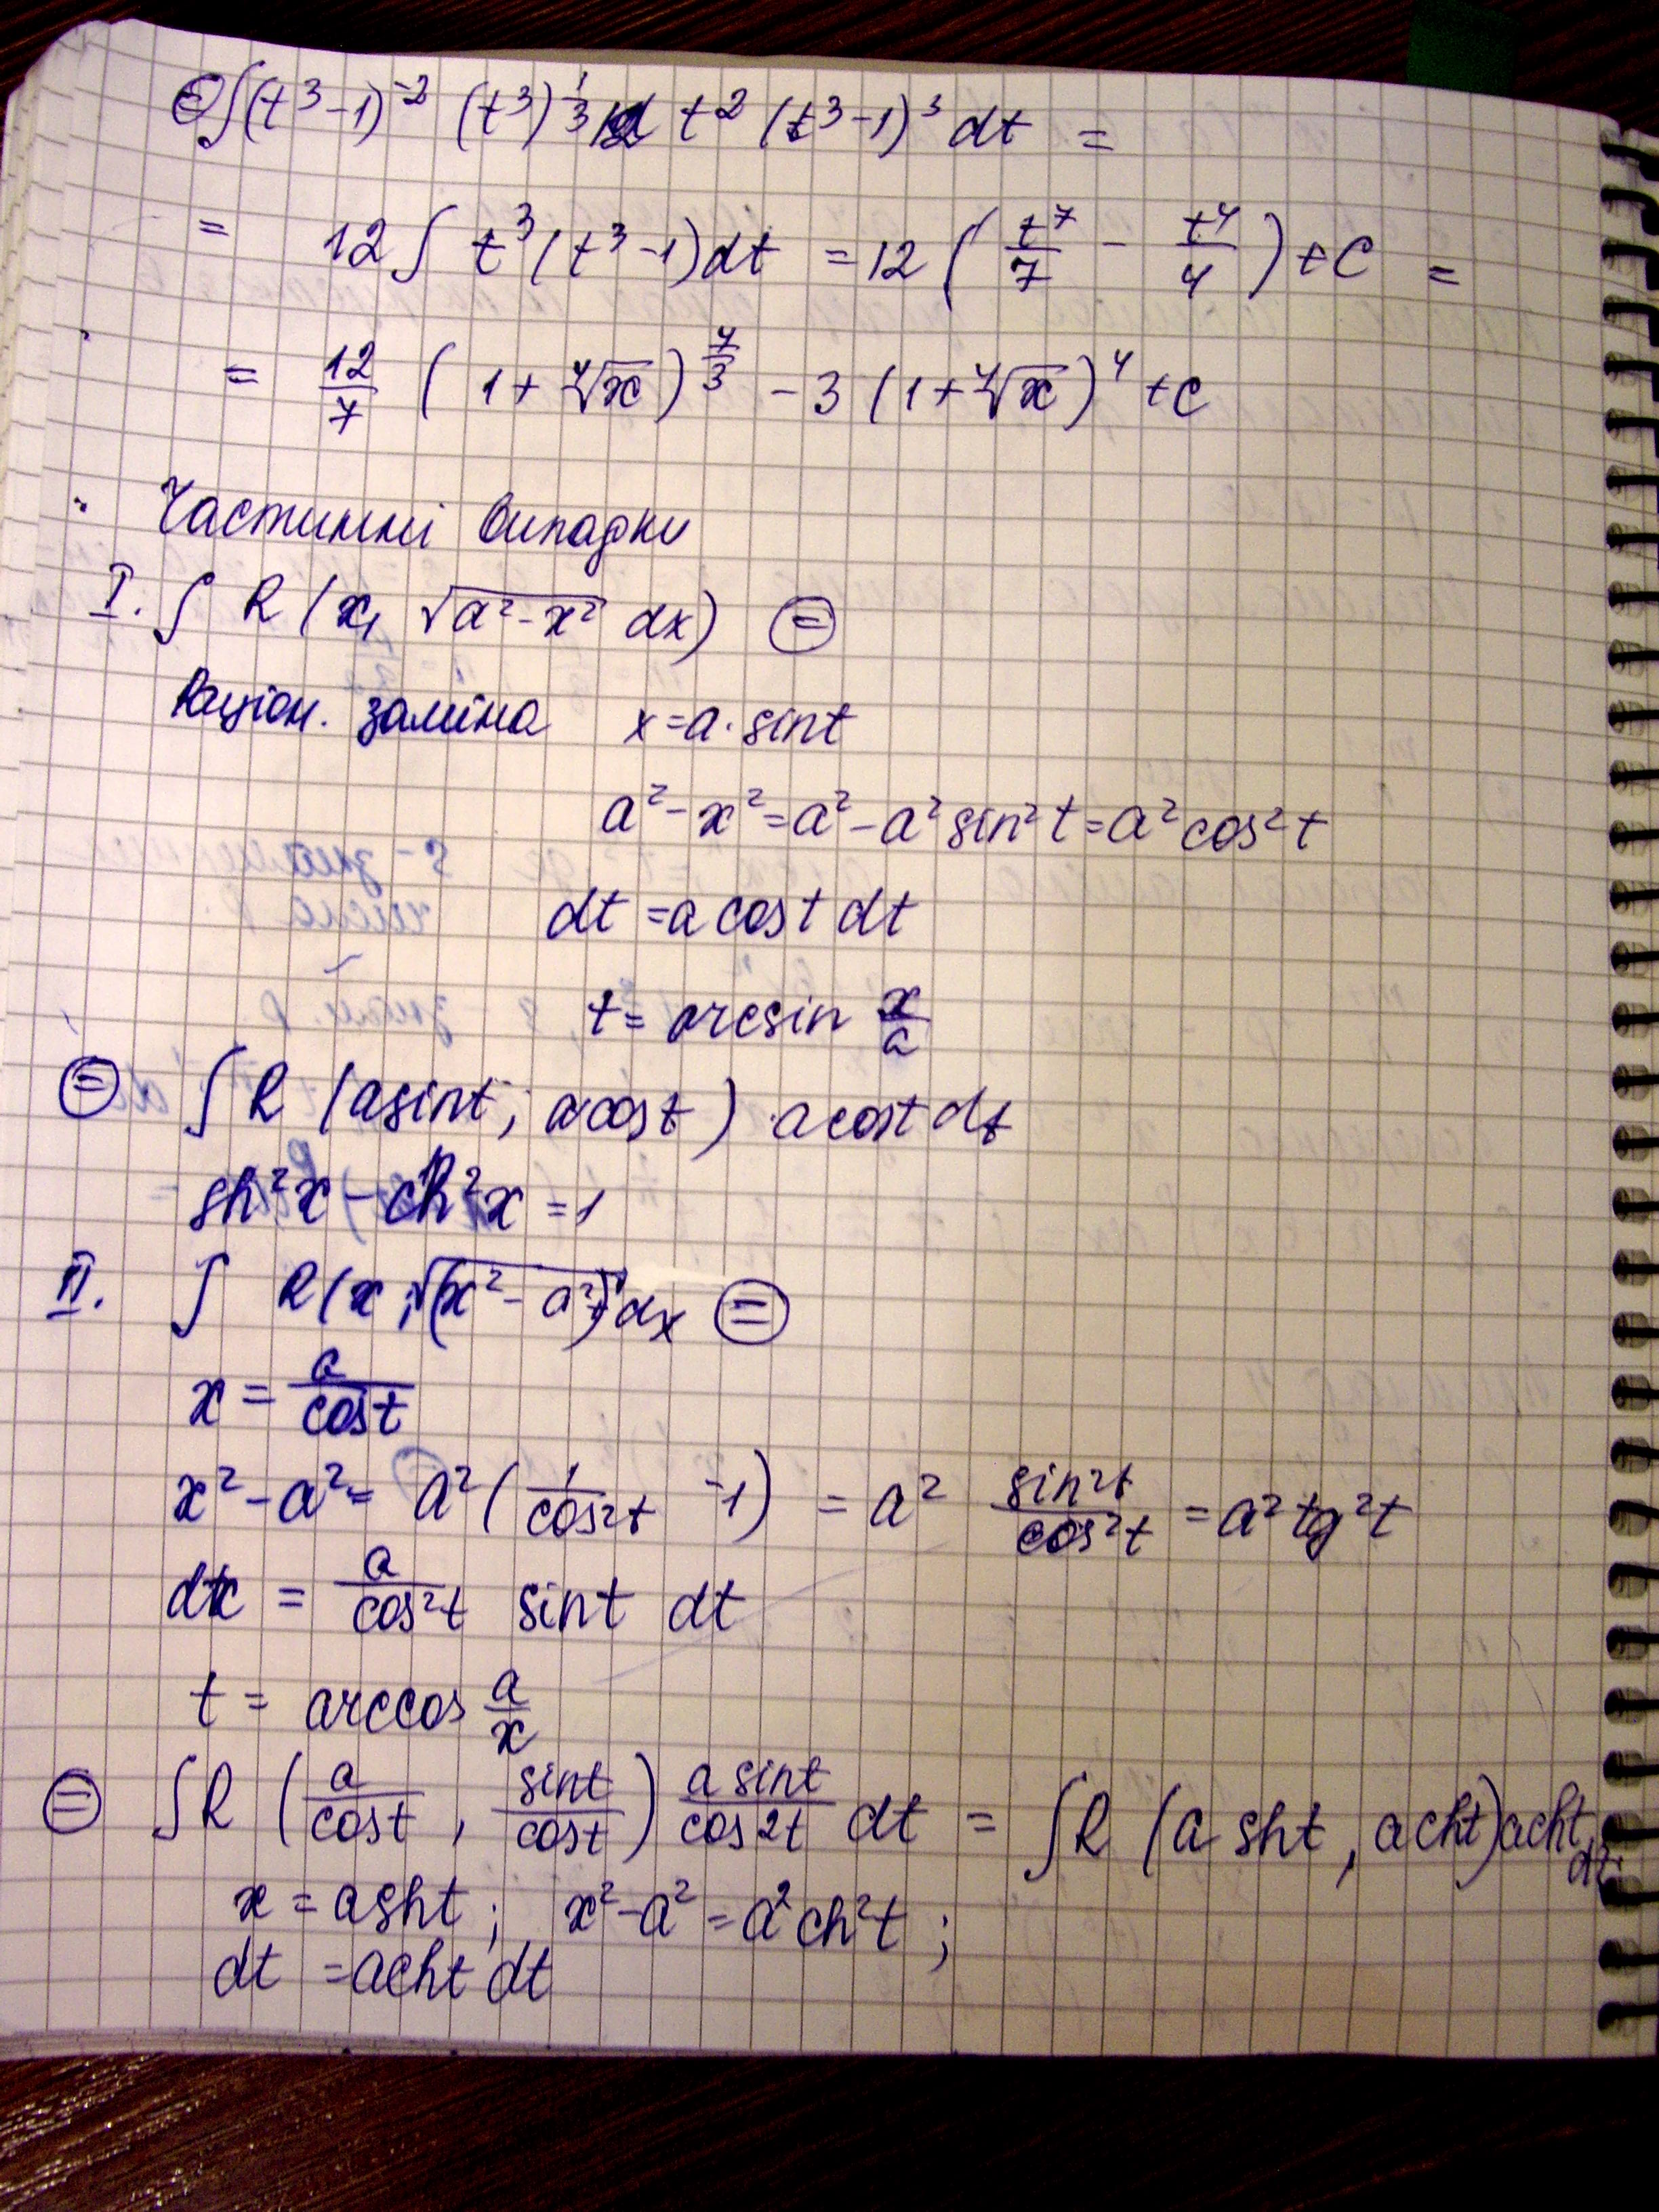 ⊜ ∫(t³-1)⁻² (t³)^{1/3} 12 t² (t³-1)³ dt =
= 12 ∫ t³(t³-1)dt = 12 ( t⁷/7 - t⁴/4 ) + C =
= 12/7 ( 1 + ⁴√x )^{7/3} - 3 (1 + ⁴√x )⁴ + C
Частинні випадки
I. ∫ R (x, √(a²-x²) dx) ⊜
Раціон. заміна x = a · sint
a²-x² = a² - a² sin² t = a² cos² t
dt = a cost dt
t = arcsin x/a
⊜ ∫ R (asint; acost) · acost dt
sh²x - ch²x = 1
II. ∫ R(x; √(x²-a²)) dx ⊜
x = a/cost
x²-a² = a² ( 1/cos²t -1) = a² sin²t/cos²t = a² tg²t
dx = a/cos²t sint dt
t = arccos a/x
⊜ ∫R ( a/cost , sint/cost ) a sint/cos2t dt = ∫R (a sht, acht)acht dt
x = asht ; x²-a² = a²ch²t ;
dt = acht dt